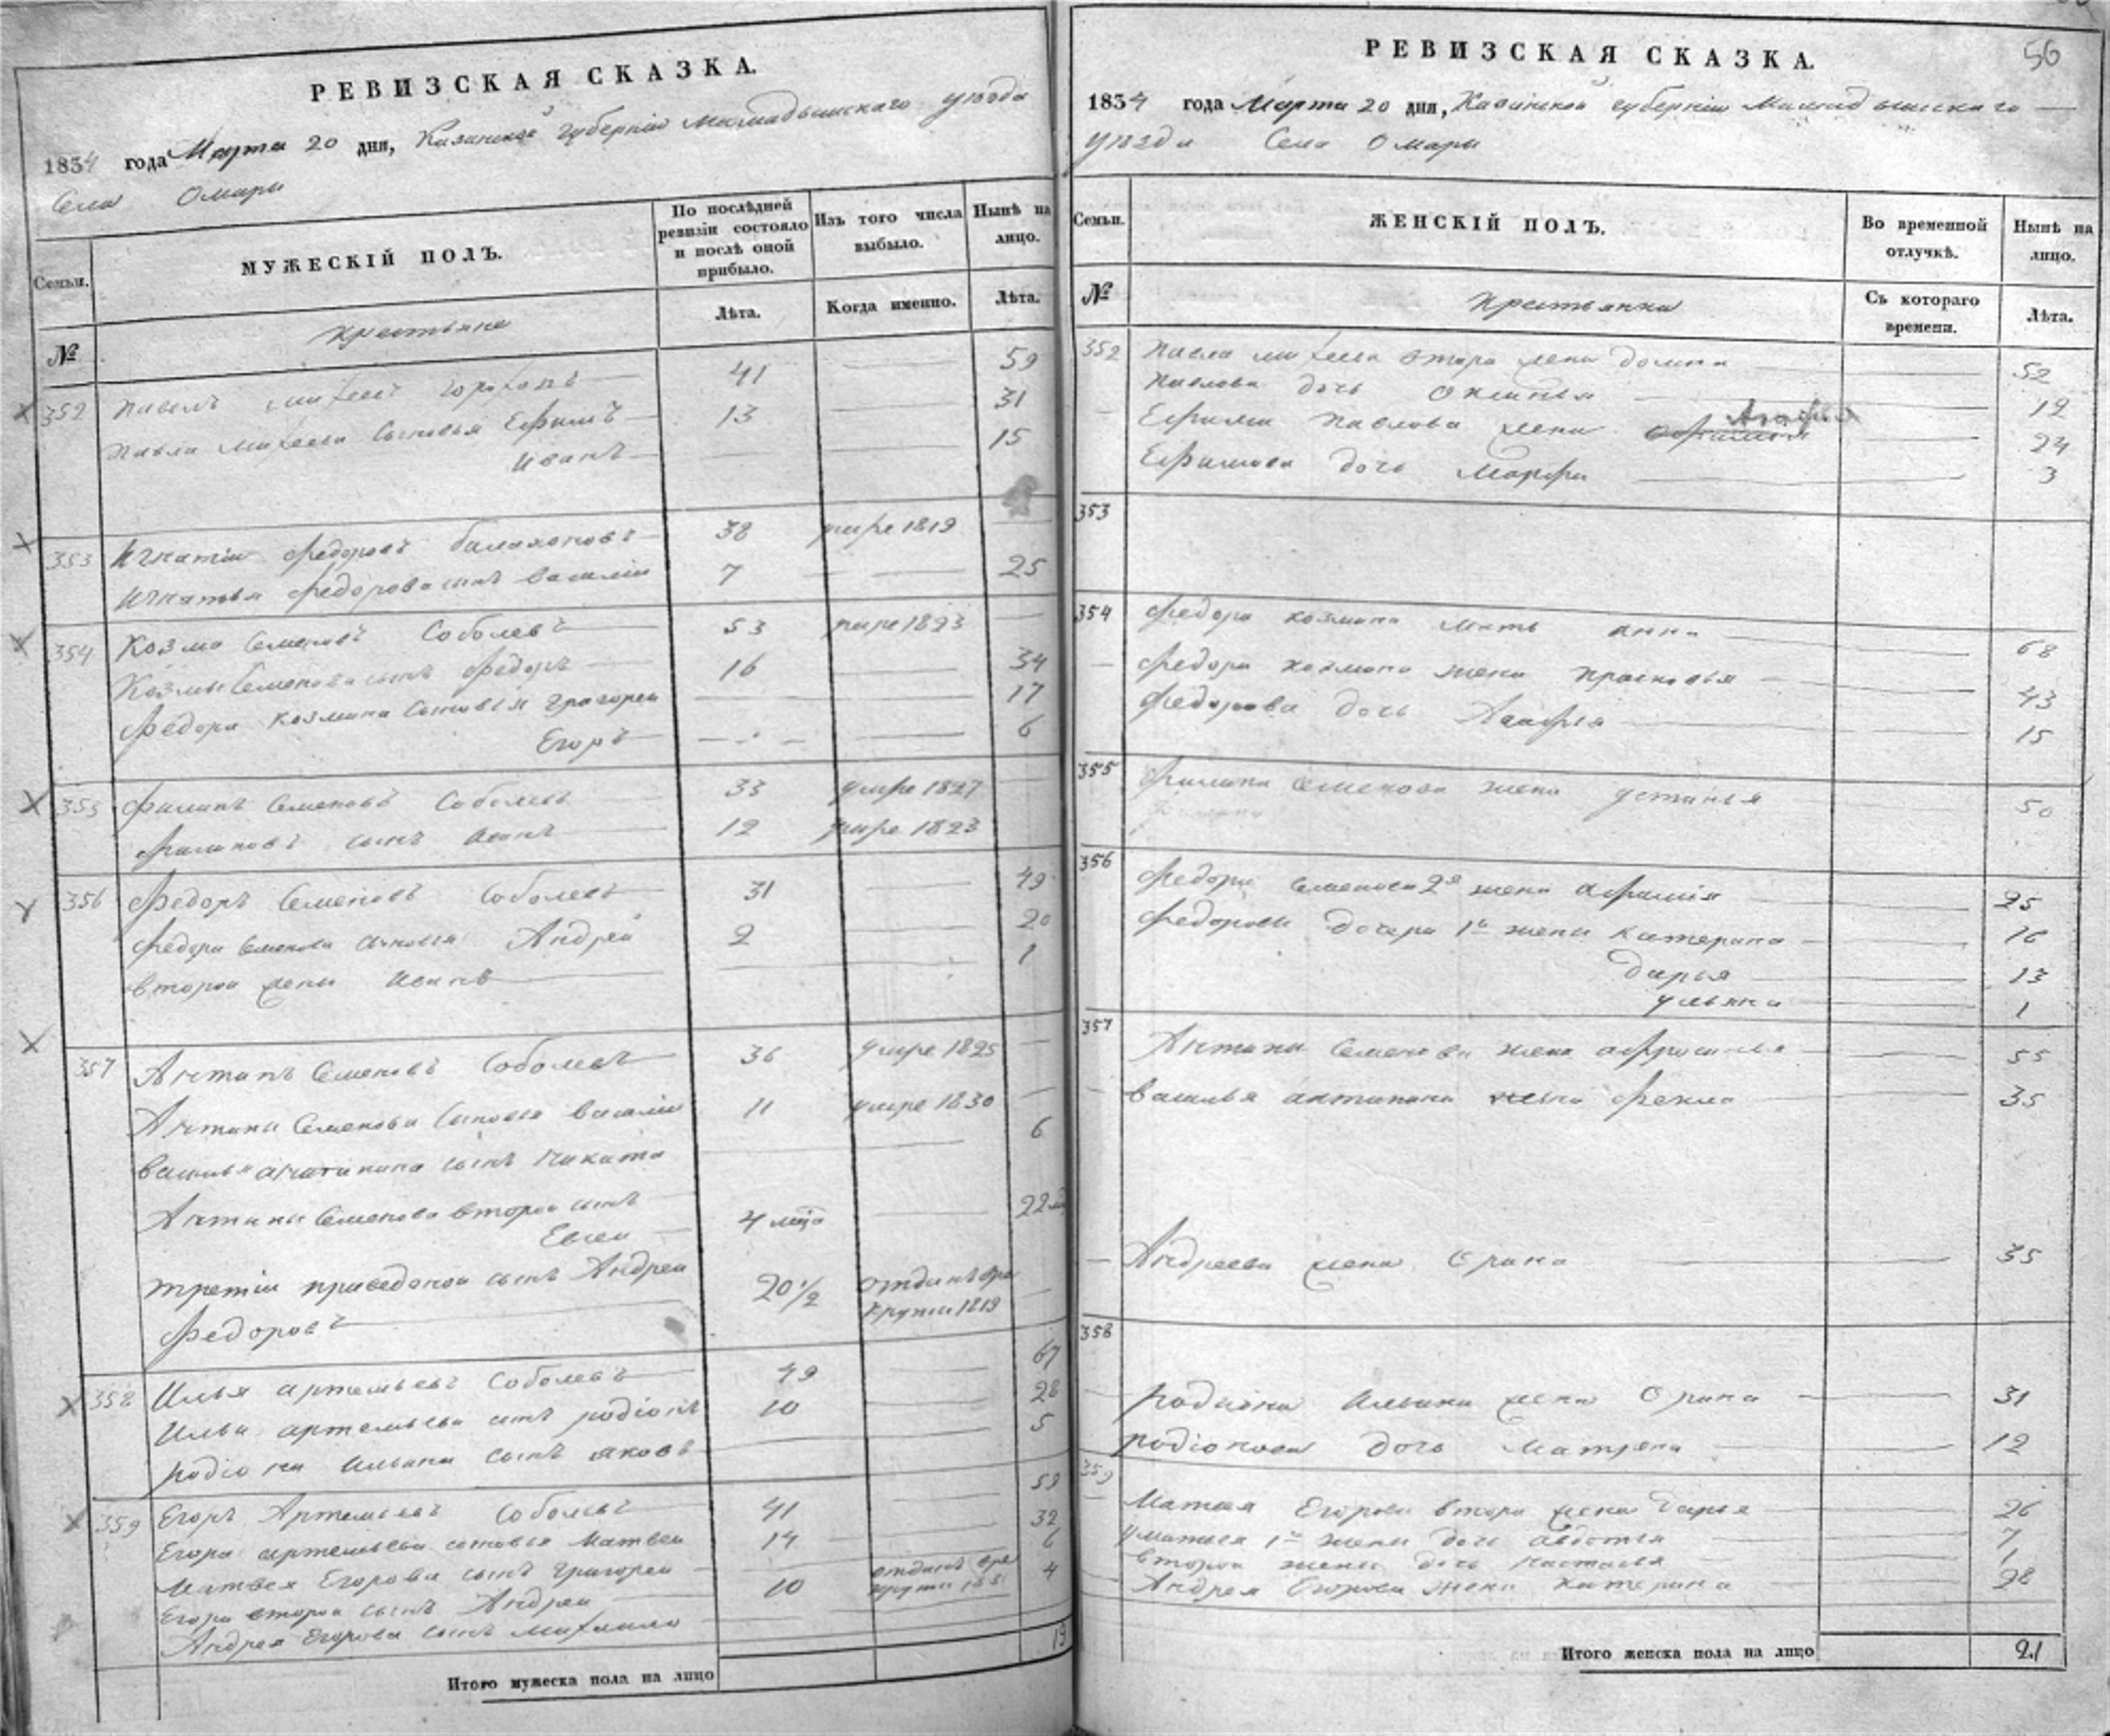 РЕВИЗСКАЯ СКАЗКА.
1834 года Марта 20 дня, Казанской губернии Мамадышскаго уѣзда
Села Омары
Семьи.
МУЖЕСКІЙ ПОЛЪ.
По послѣдней ревизіи состояло и послѣ оной прибыло.
Изъ того числа выбыло.
Нынѣ на лицо.
№
крестьяне
Лѣта.
Когда именно.
Лѣта.
352 Павелъ Михеевъ 41 59
Павла Михеева сыновья Ефимъ 13 31
Иванъ 15
353 Игнатіи Федоровъ Балахоновъ 38 умре 1819
Игнатья Федорова сынъ Василіи 7 25
354 Козма Семеновъ Соболевъ 53 умре 1823
Козмы Семенова сынъ Федоръ 16 34
Федора Козмина сыновья Григореи 17
Егоръ 6
355 Филипъ Семеновъ Соболевъ 33 умре 1827
Филиповъ сынъ Иванъ 12 умре 1823
356 Федоръ Семеновъ Соболевъ 31 49
Федора Семенова сыновья Андрей 2 20
второи жены Иванъ 1
357 Антипъ Семеновъ Соболевъ 36 умре 1825
Антипа Семенова сыновья Василіи 11 умре 1830
Василья Антипина сынъ Никита 6
Антипа Семенова второи сынъ
Евсеи 4 мца 22
третіи приведеной сынъ Андреи 20 1/2 отданъ въ ре
Федоровъ круты 1819
358 Илья Артемьевъ Соболевъ 49 67
Ильи Артемьева сынъ Родіонъ 10 28
Родіона Ильина сынъ Яковъ 5
359 Егоръ Артемьевъ Соболевъ 41 59
Егора Артемьева сыновья Матвеи 14 32
Матвея Егорова сынъ Григореи 6
Егора второи сынъ Андреи 10 отданъ в ре круты
Андрея Егорова сынъ Михаило 4
Итого мужеска пола на лицо 19
56
РЕВИЗСКАЯ СКАЗКА.
1834 года Марта 20 дня, Казанской губерніи Мамадышскаго
уѣзда Села Омары
Семьи.
ЖЕНСКІЙ ПОЛЪ.
Во временной отлучкѣ.
Нынѣ на лицо.
№
крестьянки
Съ котораго времени.
Лѣта.
352 Павла Михеева втора жена Домна 52
Павлова дочь 19
Ефима Павлова жена Агафья 24
Ефимова дочь Марфа 3
353
354 Федора Козмина мать Анна 68
Федора Козмина жена Прасковья 43
Федорова дочь Агафья 15
355 Филипа Семенова жена Устинья 50
356 Федора Семенова 2я жена Афимія 25
Федоровы дочери 1й жены Катерина 16
Дарья 13
Ульяна 1
357 Антипа Семенова жена Афросинья 55
Василья Антипина жена Фекла 35
Андреева жена Орина 35
358
Родіона Ильина жена Орина 31
Родіонова дочь Матрена 12
359
Матвея Егорова втора жена Дарья 26
у Матвея 1й жены дочь Авдотья 7
второи жены дочь Настасья 1
Андрея Егорова жена Катерина 28
Итого женска пола на лицо 21